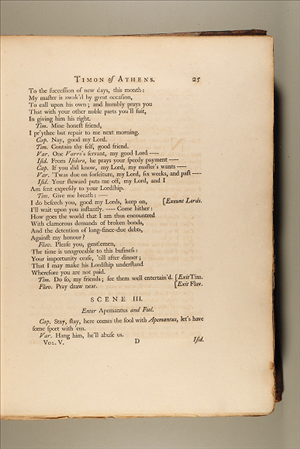 TIMON of ATHENS. 25
To the ſucceſſion of new days, this month:
My maſter is awak'd by great occaſion,
To call upon his own; and humbly prays you
That with your other noble parts you'll ſuit,
In giving him his right.
Tim. Mine honeſt friend,
I pr'ythee but repair to me next morning.
Cap. Nay, good my Lord.
Tim. Contain thy ſelf, good friend.
Var. One Varro's ſervant, my good Lord —
Iſid. From Iſidore, he prays your ſpeedy payment —
Cap. If you did know, my Lord, my maſter's wants —
Var. 'Twas due on forfeiture, my Lord, ſix weeks, and paſt —
Iſid. Your ſteward puts me off, my Lord, and I
Am ſent expreſſly to your Lordſhip.
Tim. Give me breath: —
I do beſeech you, good my Lords, keep on, [Exeunt Lords.
I'll wait upon you inſtantly. — Come hither:
How goes the world that I am thus encountred
With clamorous demands of broken bonds,
And the detention of long-ſince-due debts,
Againſt my honour?
Flav. Pleaſe you, gentlemen,
The time is unagreeable to this buſineſs:
Your importunity ceaſe, 'till after dinner;
That I may make his Lordſhip underſtand
Wherefore you are not paid.
Tim. Do ſo, my friends; ſee them well entertain'd. [Exit Tim.
Flav. Pray draw near. [Exit Flav.
SCENE III.
Enter Apemantus and Fool.
Cap. Stay, ſtay, here comes the fool with Apemantus, let's have
ſome ſport with 'em.
Var. Hang him, he'll abuſe us.
VOL. V. D Iſid.